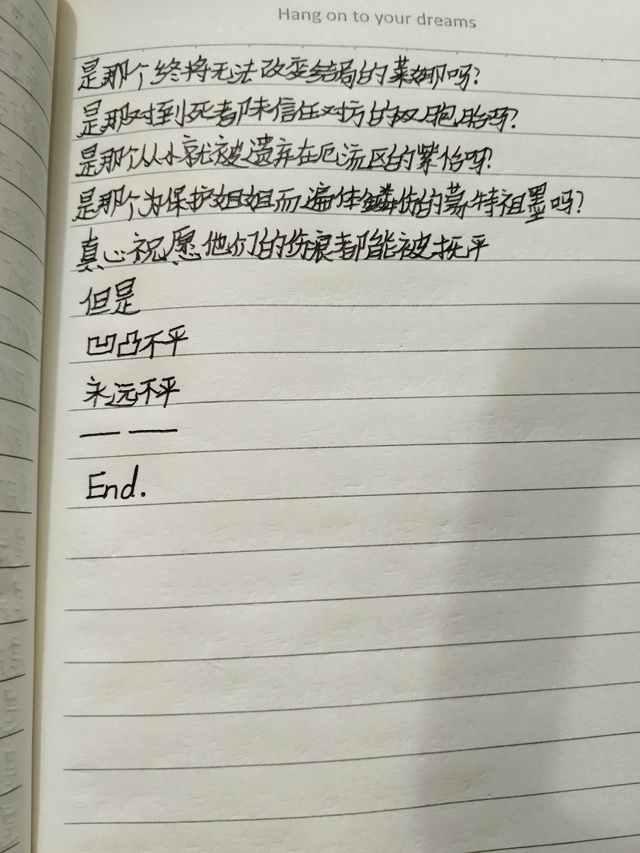 Hang on to your dreams
是那个终将无法改变结局的莱娜吗?
是那对到死都未信任对方的双胞胎吗?
是那个从小就被遗弃在厄流区的紫怡吗?
是那个为保护姐姐而遍体鳞伤的蒙特祖墨吗?
真心祝愿他们的伤痕都能被抚平
但是
凹凸不平
永远不平
— —
End.